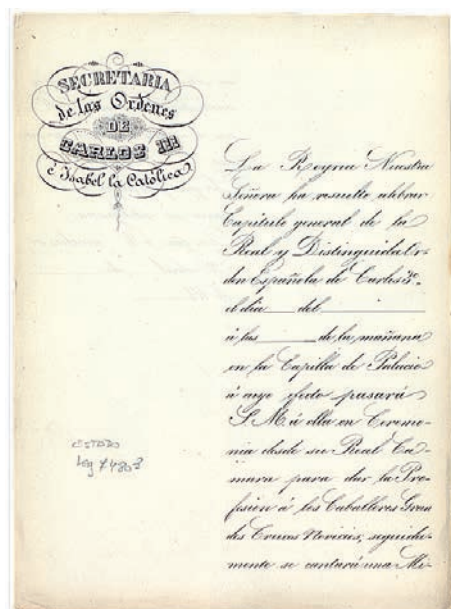 SECRETARIA
de las Ordenes
DE
CARLOS III
é Isabel la Católica
La Reyna Nuestra
Señora ha resuelto celebrar
Capitulo general de la
Real y Distinguida Or-
den Española de Carlos 3º.
el dia ___ del ___
á las ___ de la mañana
en la Capilla de Palacio
á cuyo efecto pasará
S. M. á ella en Ceremo-
nia desde su Real Cá-
mara para dar la Pro-
fesion á los Caballeros Gran
des Cruces Novicios, seguida-
mente se cantará una Mi-
ESTADO
Leg 7480